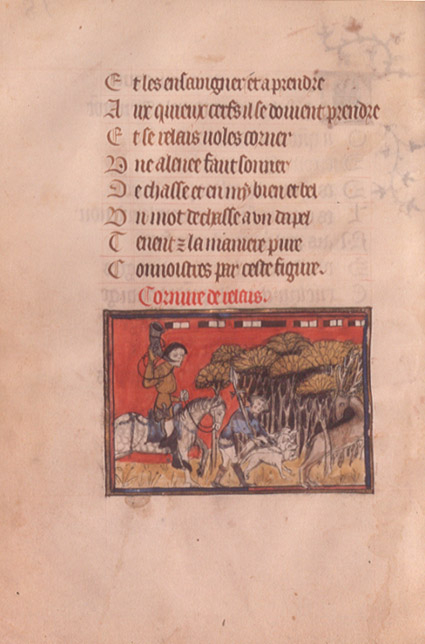 Et les ensaingner et aprendre
Aux quieux cerfs il se doivent prendre
Et se relais voles corner
Une alenee faut sonner
De chasse et en my bien et bel
Un mot de chasse a un apel
Tenent ⁊ la maniere pure
Connoistres par ceste figure.
Cornure de relais.